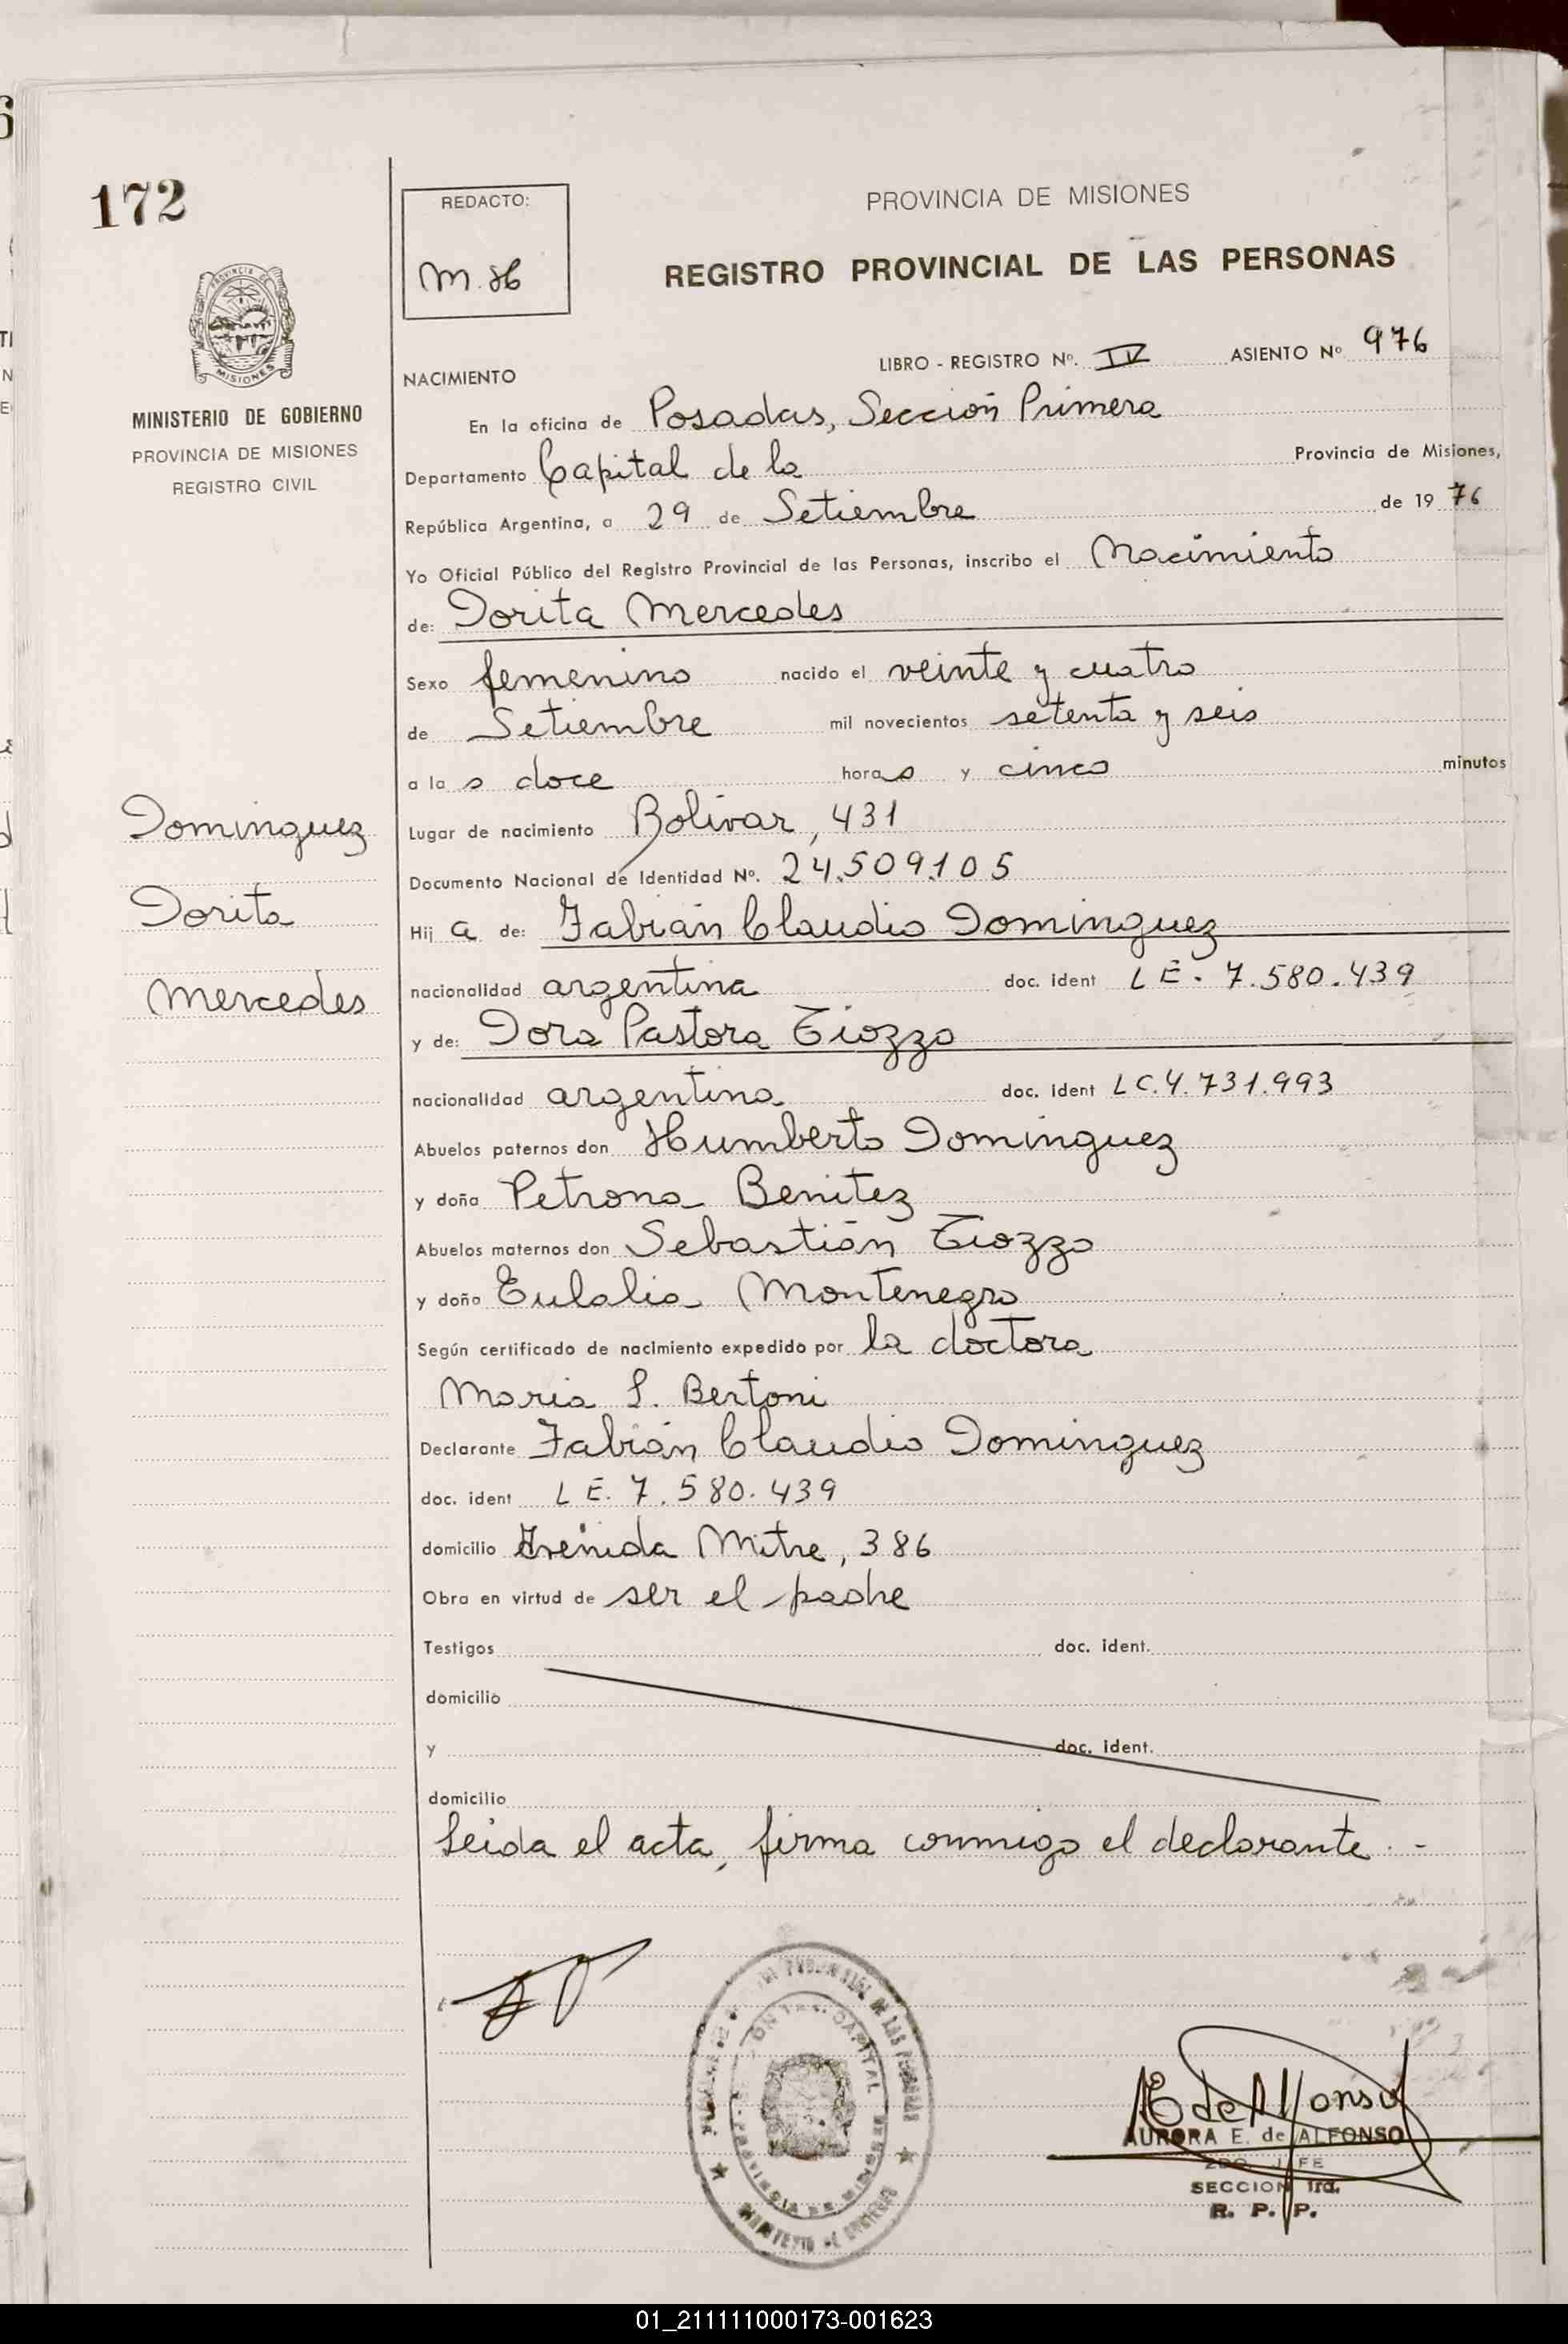 172
REDACTO:
M. H
PROVINCIA DE MISIONES
REGISTRO PROVINCIAL DE LAS PERSONAS
MISIONES
MINISTERIO DE GOBIERNO
PROVINCIA DE MISIONES
REGISTRO CIVIL
LIBRO - REGISTRO Nº. IV ASIENTO Nº 976
NACIMIENTO
En la oficina de Posadas, Sección Primera
Departamento Capital de la Provincia de Misiones,
República Argentina, a 29 de Setiembre de 1976
Yo Oficial Público del Registro Provincial de las Personas, inscribo el Nacimiento
de: Dorita Mercedes
Sexo femenino nacido el veinte y cuatro
de Setiembre mil novecientos setenta y seis
a las doce horas y cinco minutos
Dominguez
Lugar de nacimiento Bolívar, 431
Documento Nacional de Identidad Nº. 24.509.105
Dorita
Hija de: Fabián Claudio Dominguez
Mercedes
nacionalidad argentina doc. ident L E. 7.580.439
y de: Dora Pastora Tiozzo
nacionalidad argentina doc. ident LC.4.731.993
Abuelos paternos don Humberto Dominguez
y doña Petrona Benitez
Abuelos maternos don Sebastián Tiozzo
y doña Eulalia Montenegro
Según certificado de nacimiento expedido por la doctora
Maria S. Bertoni
Declarante Fabián Claudio Dominguez
doc. ident L E. 7.580.439
domicilio Avenida Mitre, 386
Obra en virtud de ser el padre
Testigos doc. ident.
domicilio
y doc. ident.
domicilio
Leida el acta, firma conmigo el declarante.-
CAPITAL
PROVINCIA DE MISIONES
MINISTERIO DE GOBIERNO
A E de Alfonso
AURORA E. de ALFONSO
2DO. JEFE
SECCION 1ra.
R. P. P.
01_211111000173-001623